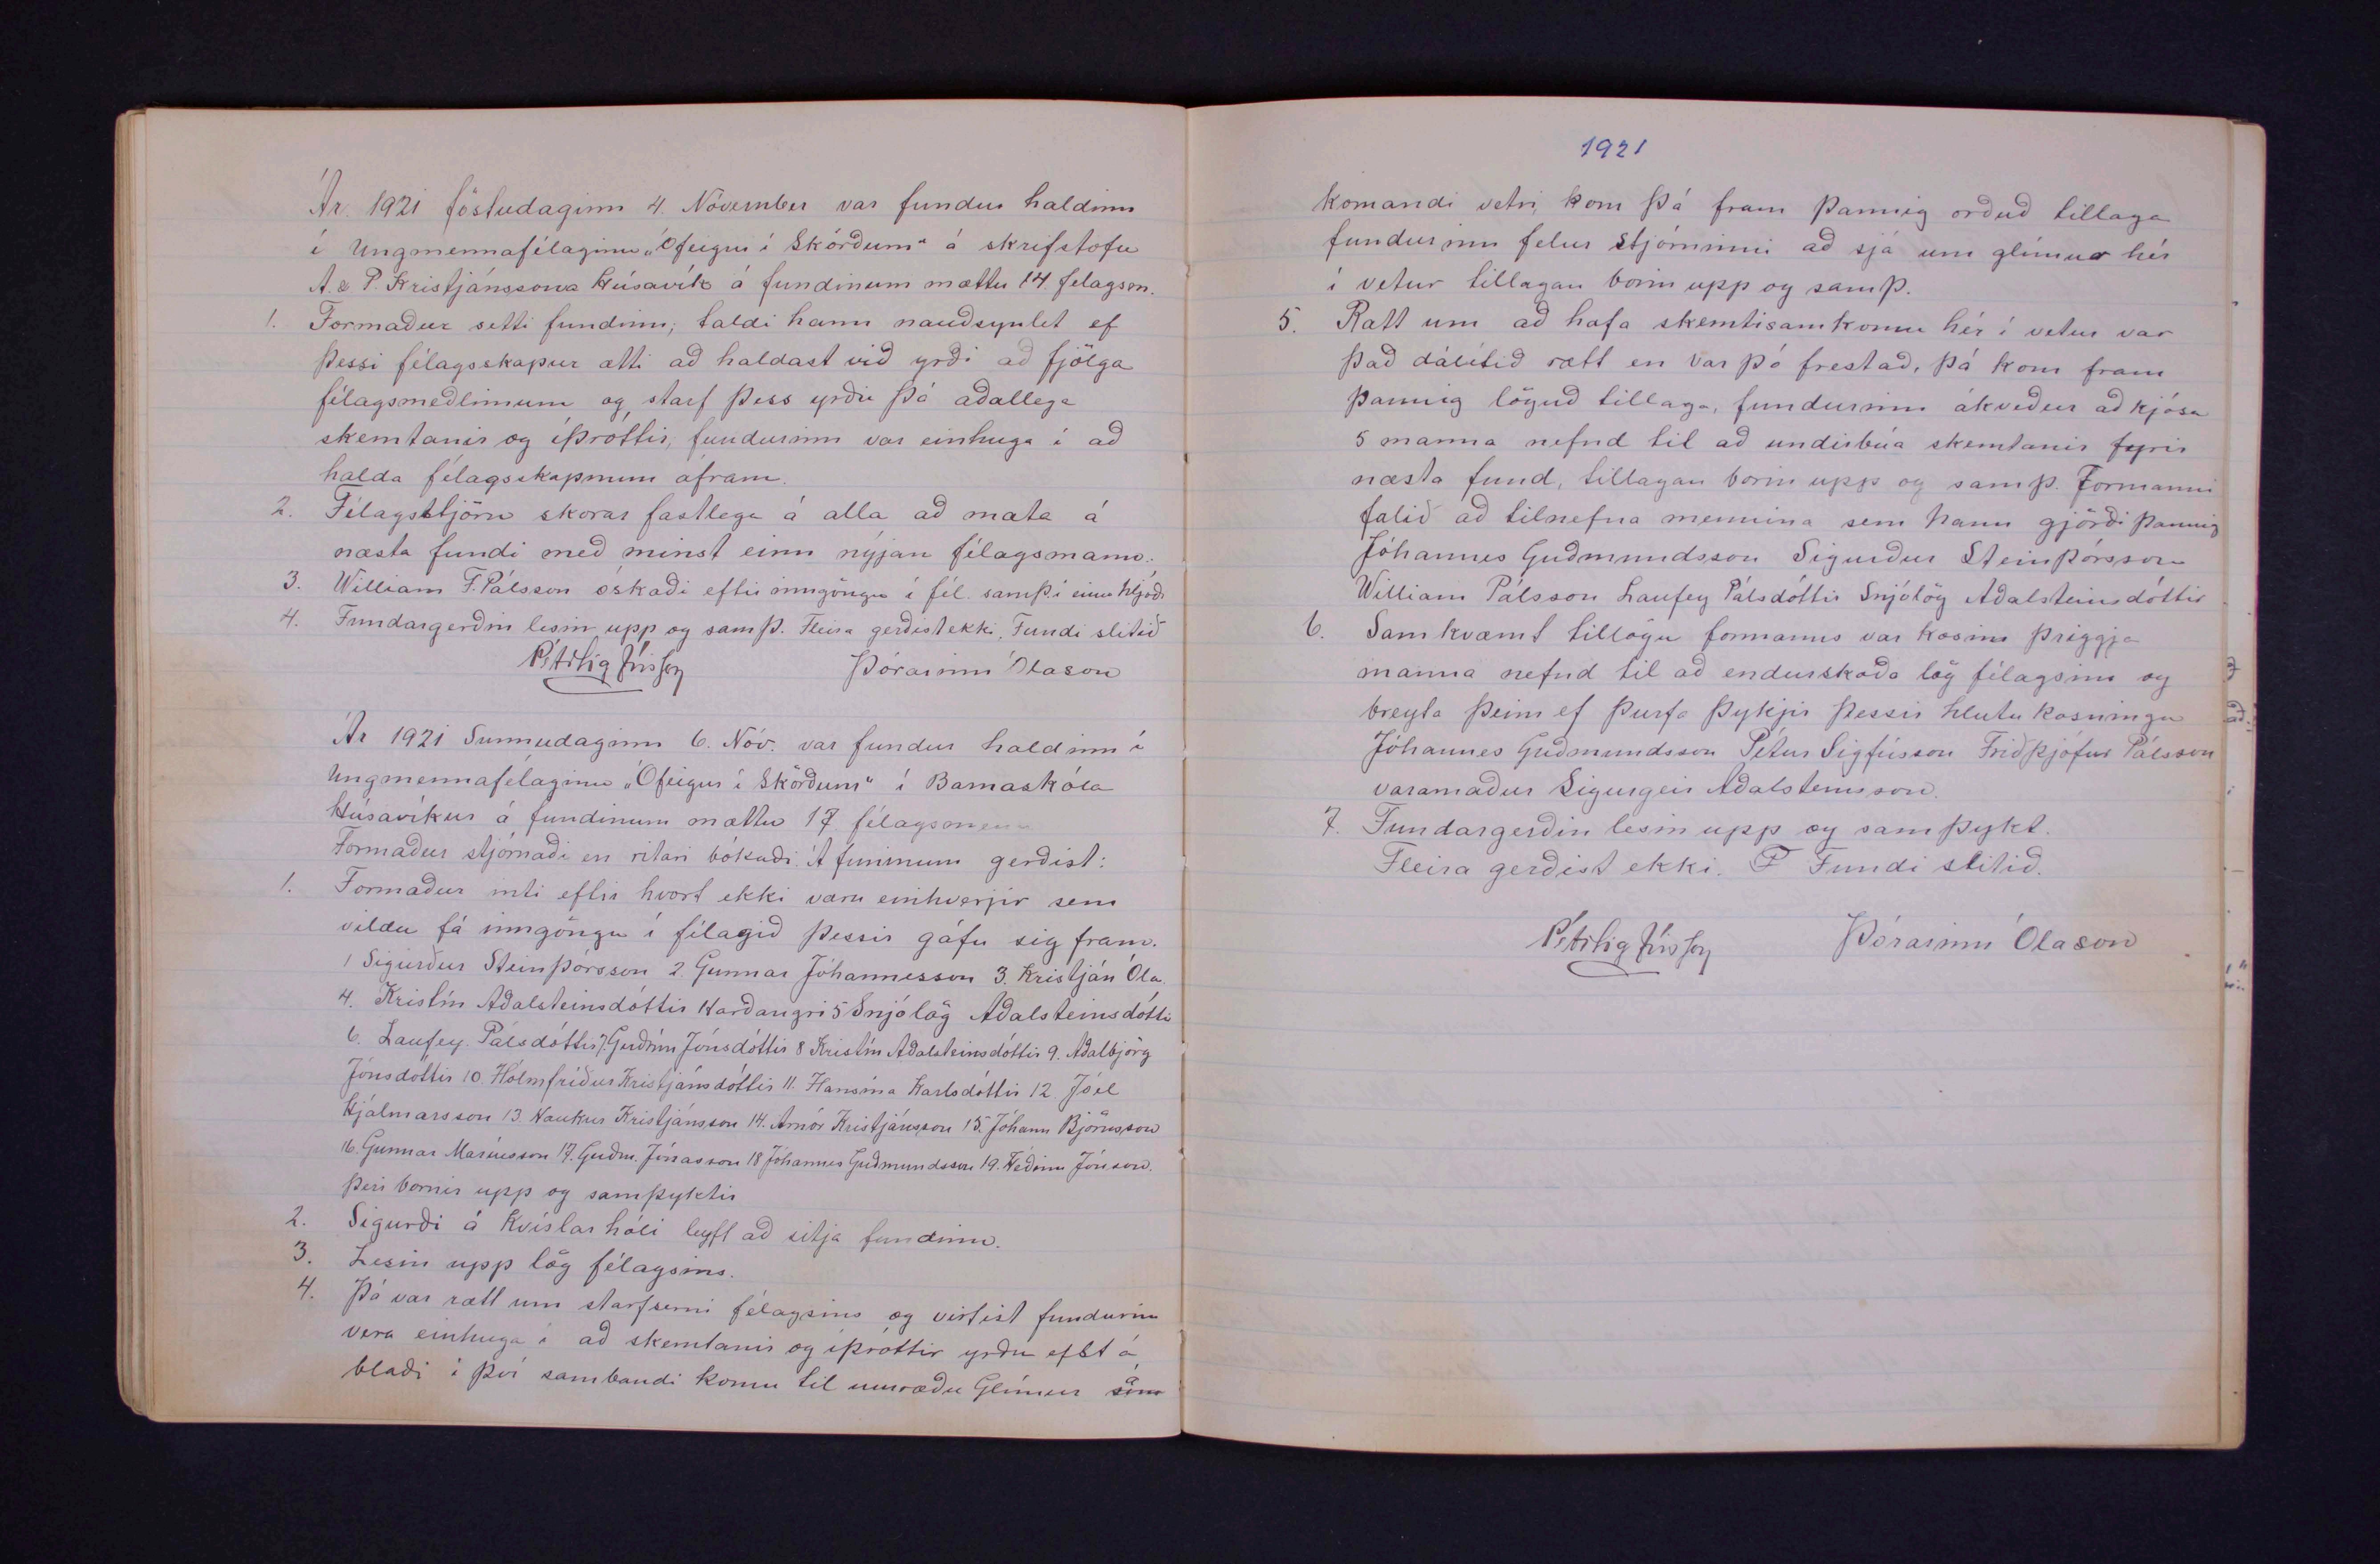 Ár 1921 föstudaginn 4. Nóvember var fundur haldinn
í Ungmennafélaginu „Ófeigur í Skörðum" á skrifstofu
A. & P. Kristjánssona Húsavík á fundinum mættu 14 félagsm.
1. Formaður setti fundinn, taldi hann nauðsynlet ef
þessi félagsskapur ætti að haldast við yrði að fjölga
félagsmeðlimum og starf þess yrðu þá aðallega
skemtanir og íþróttir, fundurinn var einhuga í að
halda félagsskapnum áfram.
2. Félagstjórn skorar fastlega á alla að mæta á
næsta fundi með minst einn nýjan félagsmann.
3. William F. Pálsson óskaði eftir inngöngu í fél. samþ í einu hljóði
4. Fundargerðin lesin upp og samþ. Fleira gerðist ekki, Fundi slitið
Pétur Sigfússon Þórarinn Ólason
Ár 1921 Sunnudaginn 6. Nóv. var fundur haldinn í
Ungmennafélaginu „Ófeigur í Skörðum" í Barnaskóla
Húsavíkur á fundinum mættu 17 félagsmenn
Formaður stjórnaði en ritari bókaði. Á funinum gerðist:
1. Formaður inti eftir hvort ekki væru einhverjir sem
vildu fá inngöngu í félagið þessir gáfu sig fram.
1 Sigurður Steinþórsson 2. Gunnar Jóhannesson 3. Kristján Óla.
4. Kristín Aðalsteinsdóttir Harðangri 5 Snjólög Aðalsteinsdótti
6. Laufey Pálsdóttir 7. Guðrún Jónsdóttir 8 Kristín Aðalsteinsdóttir 9. Aðalbjörg
Jónsdóttir 10. Hólmfríður Kristjánsdóttir 11. Hansína Karlsdóttir 12 Jóel
Hjálmarsson 13. Haukur Kristjánsson 14. Arnór Kristjánsson 15. Jóhann Björnsson
16. Gunnar Maríusson 17. Guðm. Jónasson 18 Jóhannes Guðmundsson 19. Héðinn Jónsson.
Þeir bornir upp og samþyktir
2. Sigurði á Kvíslarhóli leyft að sitja fundinn.
3. Lesin upp lög félagsins.
4. Þá var rætt um starfsemi félagsins og virtist fundurin
vera einhuga í að skemtanir og íþróttir yrðu efst á
blaði í því sambandi komu til umræðu Glímur á
1921
komandi vetri, kom þá fram þannig orðuð tillaga
fundurinn felur stjórninni að sjá um glímur hér
í vetur tillagan borin upp og samþ.
5. Rætt um að hafa skemtisamkomu hér í vetur var
það dálítið rætt en var þó frestað, þá kom fram
þannig löguð tillaga, fundurinn ákveður að kjósa
5 manna nefnd til að undirbúa skemtanir fyrir
næsta fund, tillagan borin upp og samþ. Formanni
falið að tilnefna mennina sem hann gjörði þannig
Jóhannes Guðmundsson Sigurður Steinþórsson
William Pálsson Laufey Pálsdóttir Snjólög Aðalsteinsdóttir
6. Samkvæmt tillögu formanns var kosinn þriggja
manna nefnd til að endurskoða lög félagsins og
breyta þeim ef þurfa þykjir þessir hlutu kosningu
Jóhannes Guðmundsson Pétur Sigfússon Friðþjófur Pálsson
varamaður Sigurgeir Aðalsteinsson.
7. Fundargerðin lesin upp og samþykt.
Fleira gerðist ekki. Fundi slitið.
Pétur Sigfússon Þórarinn Ólason